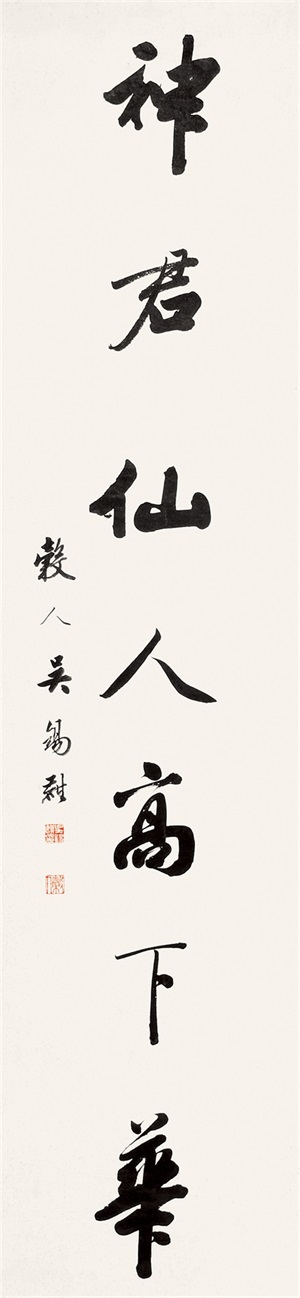 神君仙人高下華
穀人吳錫麒